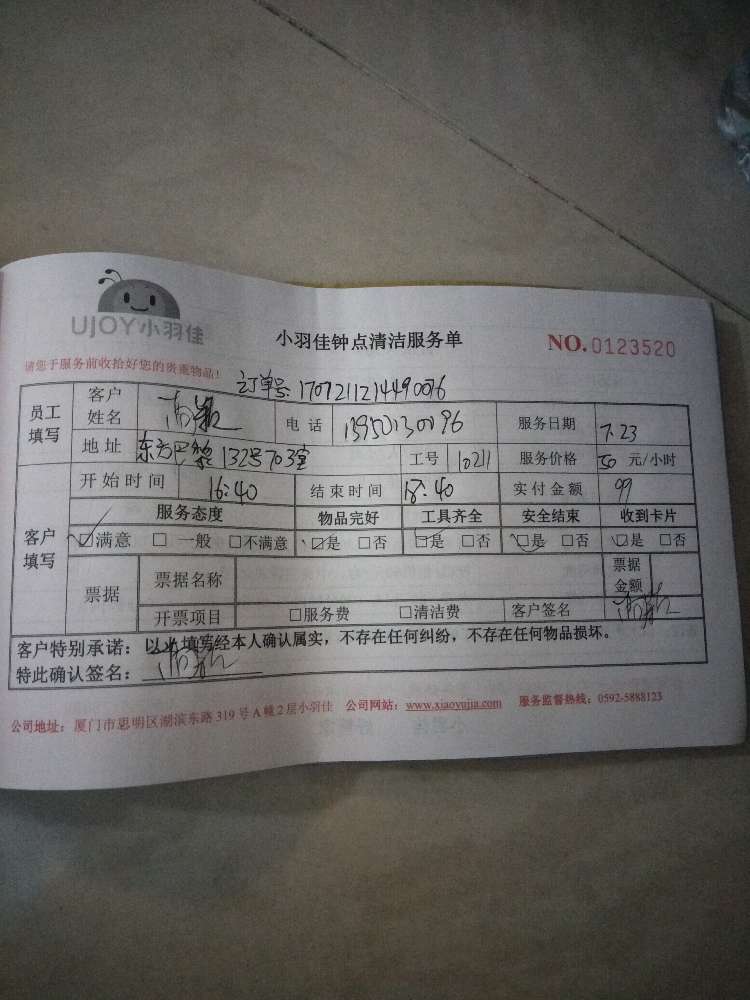 UJOY小羽佳
小羽佳钟点清洁服务单
NO.0123520
请您于服务前收拾好您的贵重物品!
订单号:
员工填写 客户姓名 电话 13950130096 服务日期 7.23
地址 东方巴黎132号703室 工号 10211 服务价格 50 元/小时
客户填写 开始时间 16:40 结束时间 18:40 实付金额 99
服务态度 物品完好 工具齐全 安全结束 收到卡片
☑满意 □一般 □不满意 ☑是 □否 ☑是 □否 ☑是 □否 ☑是 □否
票据 票据名称 票据金额
开票项目 □服务费 □清洁费 客户签名
客户特别承诺：以上填写经本人确认属实，不存在任何纠纷，不存在任何物品损坏。
特此确认签名：
公司地址：厦门市思明区湖滨东路319号A幢2层小羽佳 公司网站：www.xiaoyujia.com 服务监督热线：0592-5888123